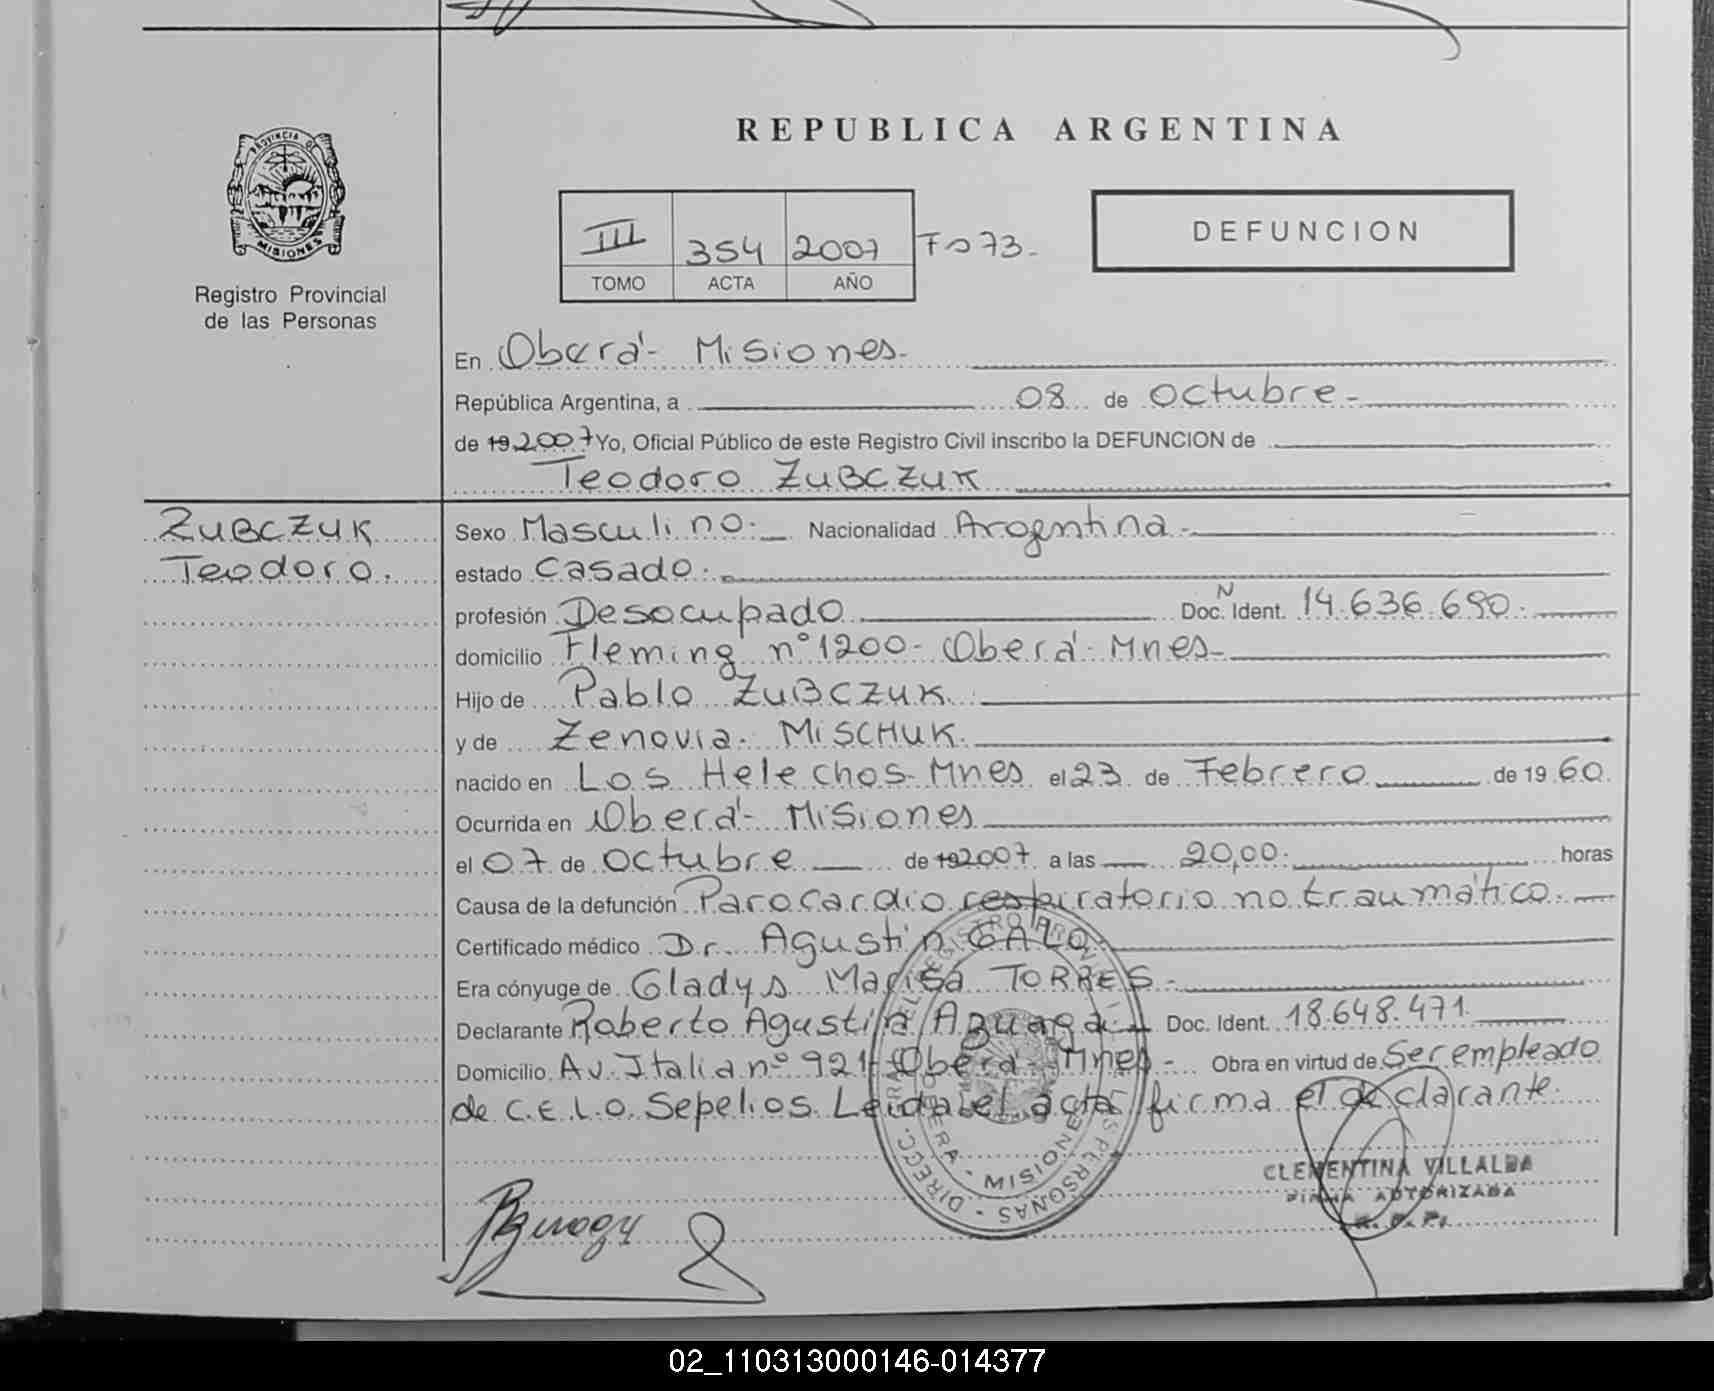 REPUBLICA ARGENTINA
PROVINCIA DE
MISIONES
Registro Provincial
de las Personas
III 354 2007 Fo 73.-
TOMO ACTA AÑO
DEFUNCION
En Oberá - Misiones.-
República Argentina, a 08 de octubre.-
de 19 2007 Yo, Oficial Público de este Registro Civil inscribo la DEFUNCION de
Teodoro ZUBCZUK
ZUBCZUK
Teodoro.
Sexo Masculino.- Nacionalidad Argentina.-
estado Casado.-
profesión Desocupado Doc. N Ident. 14.636.690.-
domicilio Fleming n° 1200- Oberá- Mnes.-
Hijo de Pablo ZUBCZUK.
y de Zenovia. MISCHUK.
nacido en Los Helechos- Mnes el 23 de Febrero de 19 60.
Ocurrida en Oberá- Misiones
el 07 de octubre de 19 2007 a las 20,00.- horas
Causa de la defunción Paro cardio respiratorio no traumático.-
Certificado médico Dr. Agustín GALO.
Era cónyuge de Gladys Marisa TORRES.-
Declarante Roberto Agustín Azuaga.- Doc. Ident. 18.648.471.
Domicilio Av. Italia n° 921- Oberá- Mnes.- Obra en virtud de Ser empleado
de C.E.L.O. Sepelios. Leída el acta firma el declarante.
MISIONES
CLEMENTINA VILLALBA
FIRMA AUTORIZADA
R. P. P.
02_110313000146-014377